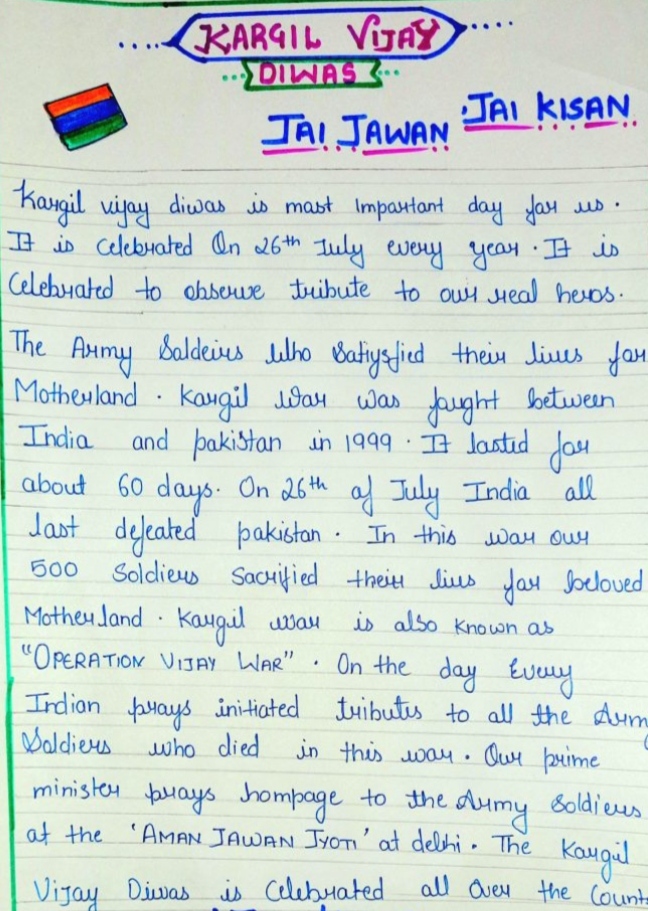 KARGIL VIJAY
DIWAS
JAI JAWAN JAI KISAN
Kargil vijay diwas is most Important day for us.
It is Celebrated On 26th July every year. It is
Celebrated to observe tribute to our real heros.
The Army Soldeirs Who Satiysfied their lives for
Motherland. Kargil War was fought between
India and pakistan in 1999. It lasted for
about 60 days. On 26th of July India all
last defeated pakistan. In this war our
500 Soldiers Sacrified their livs for beloved
Motherland. Kargil war is also known as
"OPERATION VIJAY WAR". On the day Every
Indian prays initiated tributes to all the Arm
Soldiers who died in this war. Our prime
minister prays hompage to the Army Soldiers
at the 'AMAN JAWAN JYOTI' at delhi. The Kargil
Vijay Diwas is Celebrated all Over the Count